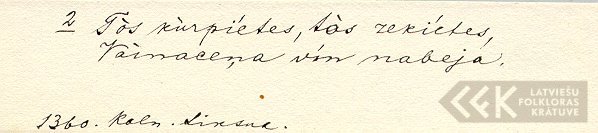 2 Tòs kùrpíetes, tàs zekíetes,
Vàinaceņa vín nabeja.
1360. Kaln. Linsna.
LATVIEŠU
FOLKLORAS
KRĀTUVE